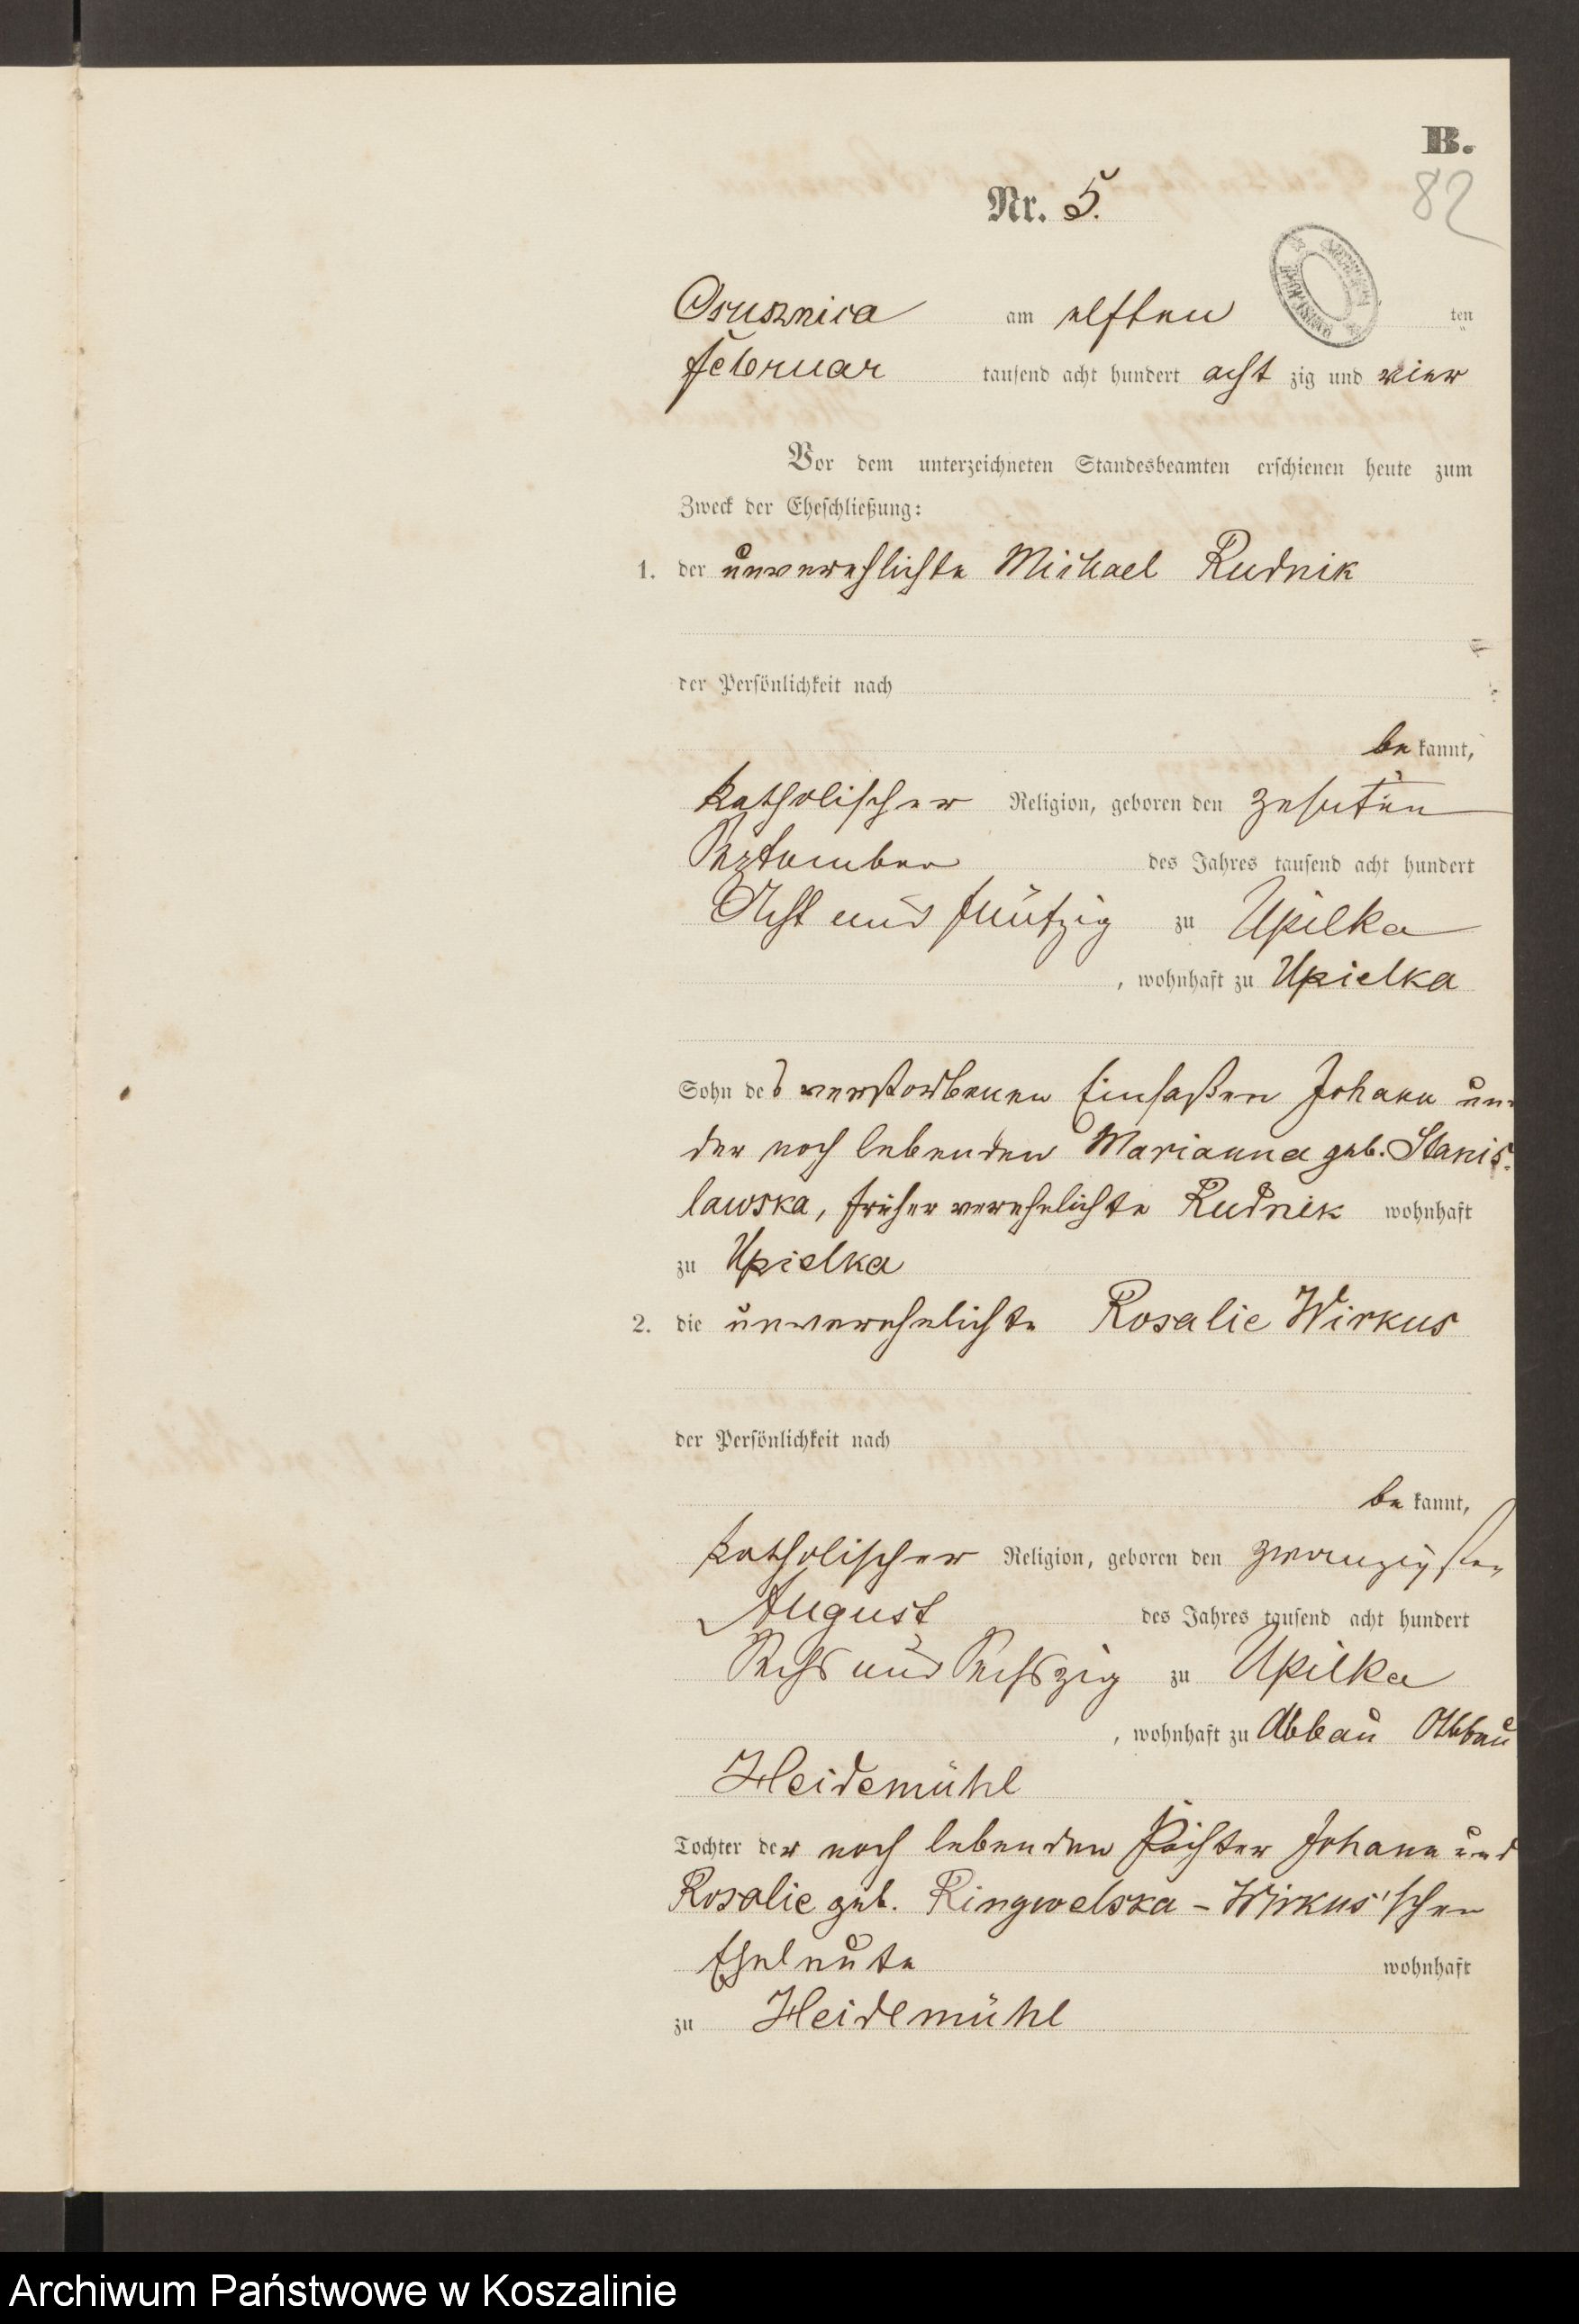 B.
82
Nr. 5.
Osusznica am elften ten
Februar tausend acht hundert acht zig und vier
Vor dem unterzeichneten Standesbeamten erschienen heute zum
Zweck der Eheschließung:
1. der unverehlichte Michael Rudnik
der Persönlichkeit nach
be kannt,
katholischer Religion, geboren den zehnten
September des Jahres tausend acht hundert
Acht und fünfzig zu Upilka
, wohnhaft zu Upielka
Sohn des verstorbenen Einsaßen Johann und
der noch lebenden Marianna geb. Stanis-
lawska, früher verehelichte Rudnik wohnhaft
zu Upielka
2. die unverehelichte Rosalie Wirkus
der Persönlichkeit nach
be kannt,
katholischer Religion, geboren den zwanzigsten
August des Jahres tausend acht hundert
Sechs und Sechszig zu Upilka
, wohnhaft zu Abbau Abbau
Heidemühl
Tochter der noch lebenden Pächter Johann und
Rosalie geb. Ringwelska - Wirkus'schen
Eheleute wohnhaft
zu Heidemühl
Archiwum Państwowe w Koszalinie